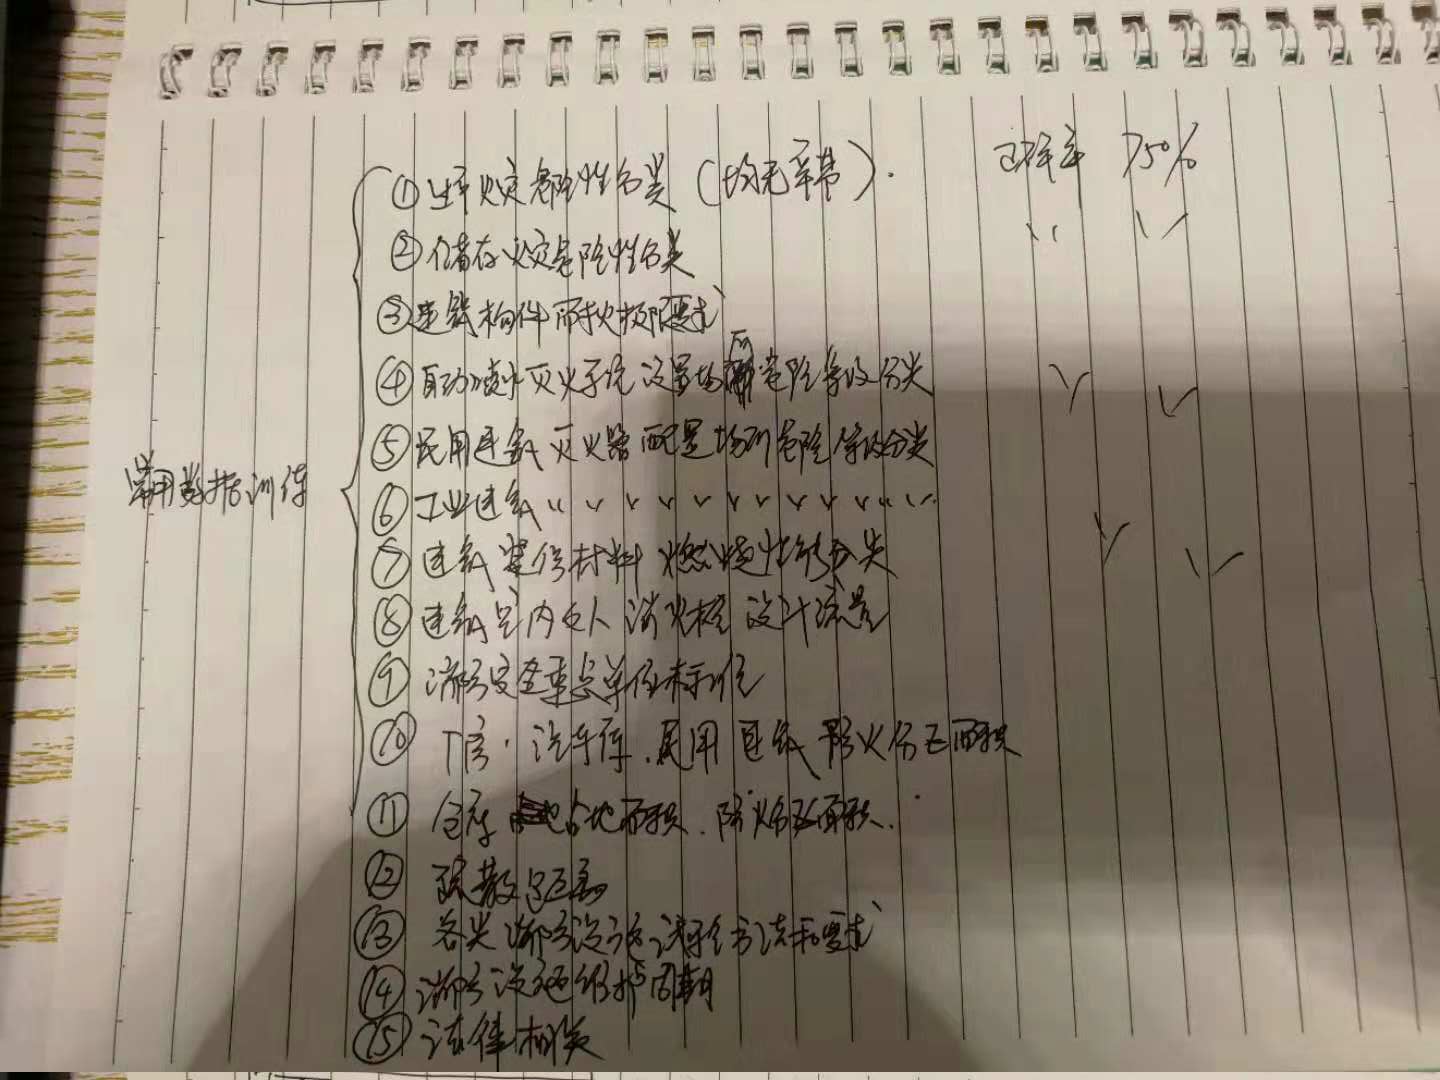 正确率 >50%
①生产火灾危险性分类(均无辛帯).
②储存火灾危险性分类 〃 〃
③建筑构件耐火极限要求
④自动喷水灭火系统设置场所危险等级分类 〃 〃
⑤民用建筑灭火器配置场所危险等级分类
常用数据训练
⑥工业建筑 〃 〃 〃 〃 〃 〃 〃 〃 〃 〃
⑦建筑装修材料燃烧性能分类 〃 〃
⑧建筑室内外消火栓设计流量
⑨消防安全重点单位标准
⑩厂房.汽车库.民用建筑防火分区面积
⑪仓库占地面积.防火分区面积.
⑫疏散距离
⑬各类消防设施 方法和要求
⑭消防设施维护周期
⑮法律相关